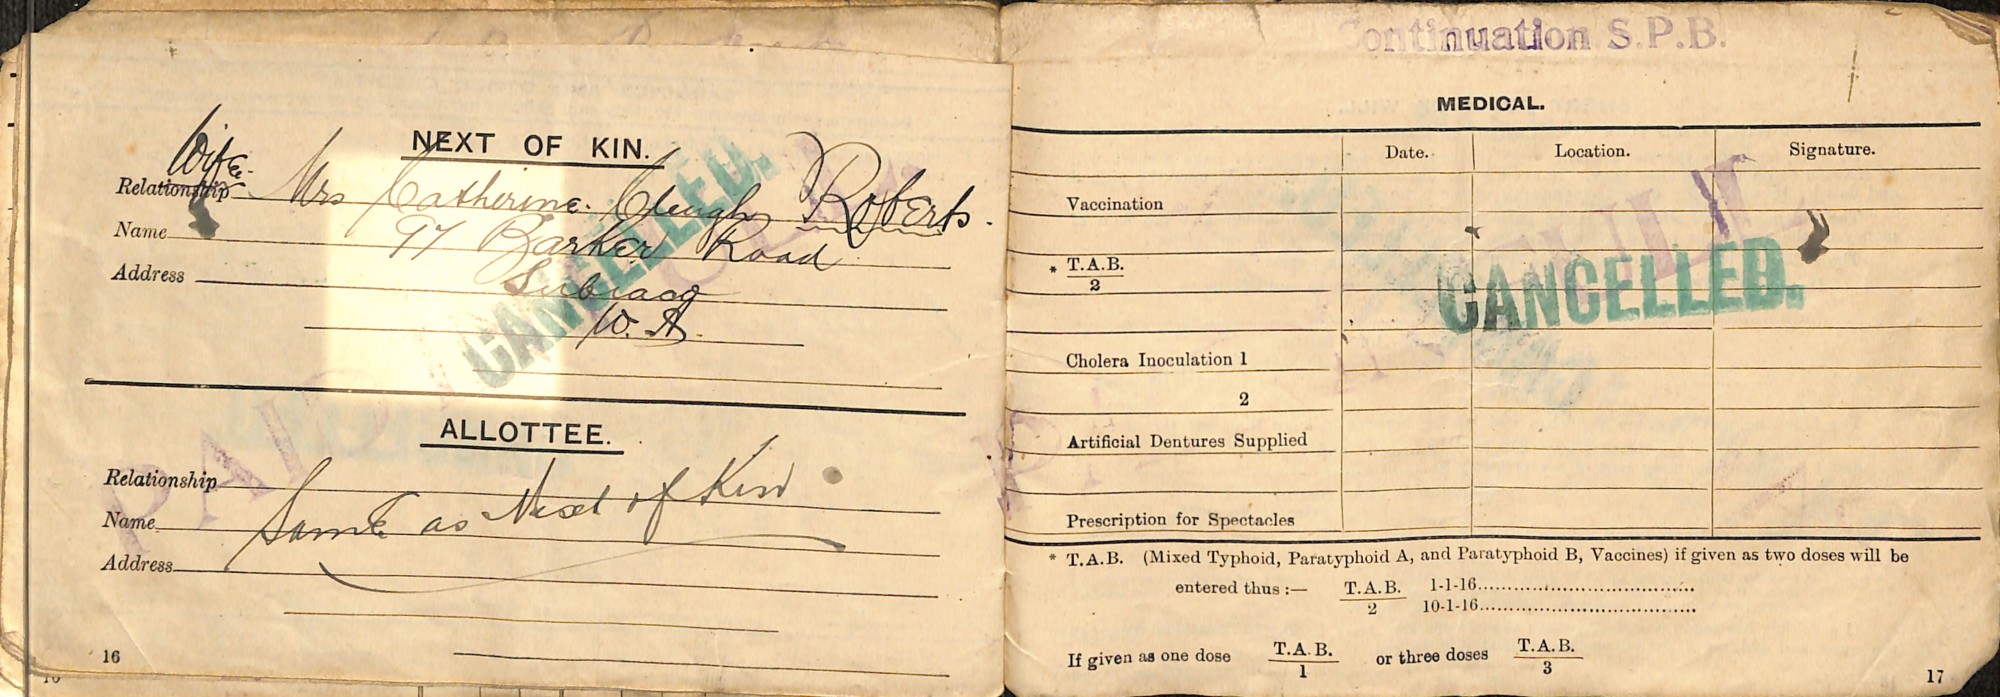 NEXT OF KIN.
Wife.
Relationship
Mrs Catherine Clough Roberts.
Name
97 Barker Road
Address
Subiaco
W. A.
CANCELLED.
ALLOTTEE.
Relationship
Name
Same as Next of Kin
Address
PAID
16
Continuation S.P.B.
MEDICAL.
Date. Location. Signature.
Vaccination
* T.A.B.
2
CANCELLED.
Cholera Inoculation 1
2
Artificial Dentures Supplied
Prescription for Spectacles
* T.A.B. (Mixed Typhoid, Paratyphoid A, and Paratyphoid B, Vaccines) if given as two doses will be
entered thus :— T.A.B. 1-1-16
2 10-1-16
If given as one dose T.A.B. or three doses T.A.B.
1 3
17